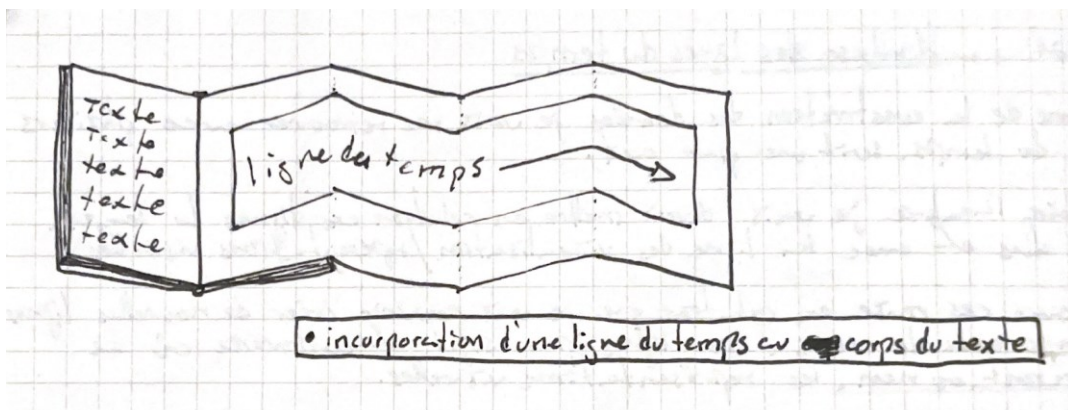 Texte
Texte
texte
texte
texte
ligne du temps
• incorporation d'une ligne du temps au corps du texte